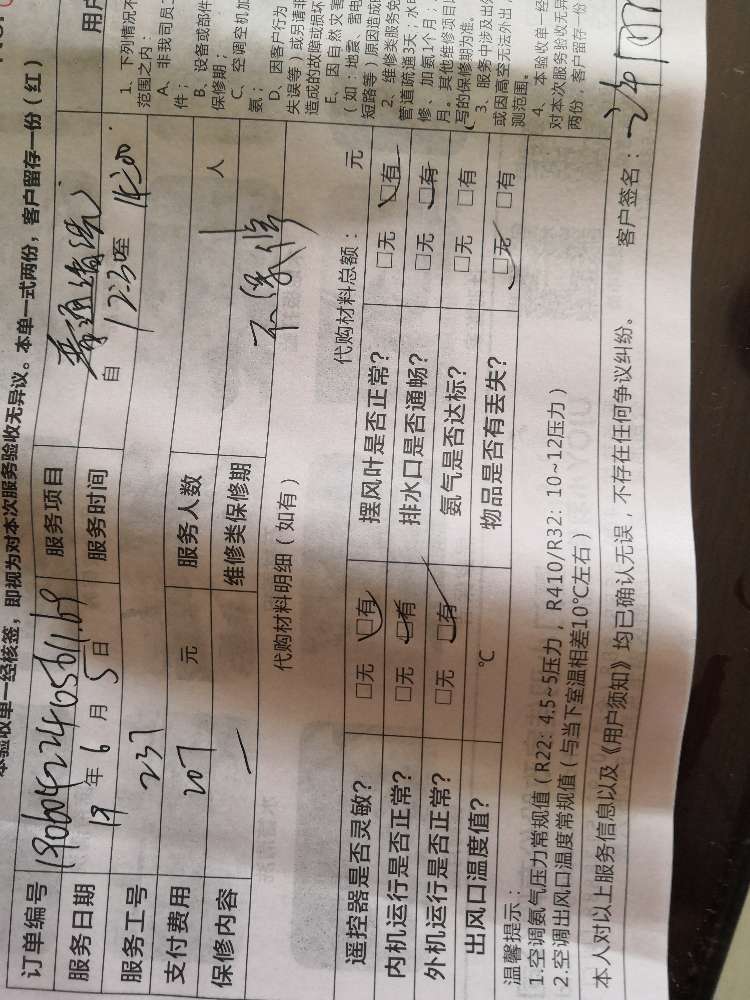 本验收单一经核签，即视为对本次服务验收无异议。本单一式两份，客户留存一份（红）
订单编号
服务项目
服务日期 19 年 6 月 5 日 服务时间 自 12:30 至 14:30
服务工号 237
支付费用 207 元 服务人数 1 人
保修内容 — 维修类保修期
代购材料明细（如有）
代购材料总额： 元
遥控器是否灵敏？ □无 □有 摆风叶是否正常？ □无 □有
内机运行是否正常？ □无 □有 排水口是否通畅？ □无 □有
外机运行是否正常？ □无 □有 氨气是否达标？ □无 □有
出风口温度值？ ℃ 物品是否有丢失？ □无 □有
温馨提示：
1.空调氨气压力常规值（R22：4.5~5压力， R410/R32：10~12压力）
2.空调出风口温度常规值（与当下室温相差10℃左右）
本人对以上服务信息以及《用户须知》均已确认无误，不存在任何争议纠纷。 客户签名：
用户
1、下列情况不
范围之内：
A、非我司员工
件；
B、设备或部件
保修期；
C、空调空机加
氨；
D、因客户行为
失误等）或另请非
造成的故障或损坏
E、因自然灾害
（如：地震、雷电
短路等）原因造成
2、维修类服务免
管道疏通3天；水
修、加氨1个月；
月。其他维修项目以
写的保修期为准。
3、服务中涉及出外
或因高空无法外出，
测范围。
4、本验收单一经
对本次服务验收无异
两份，客户留存一份